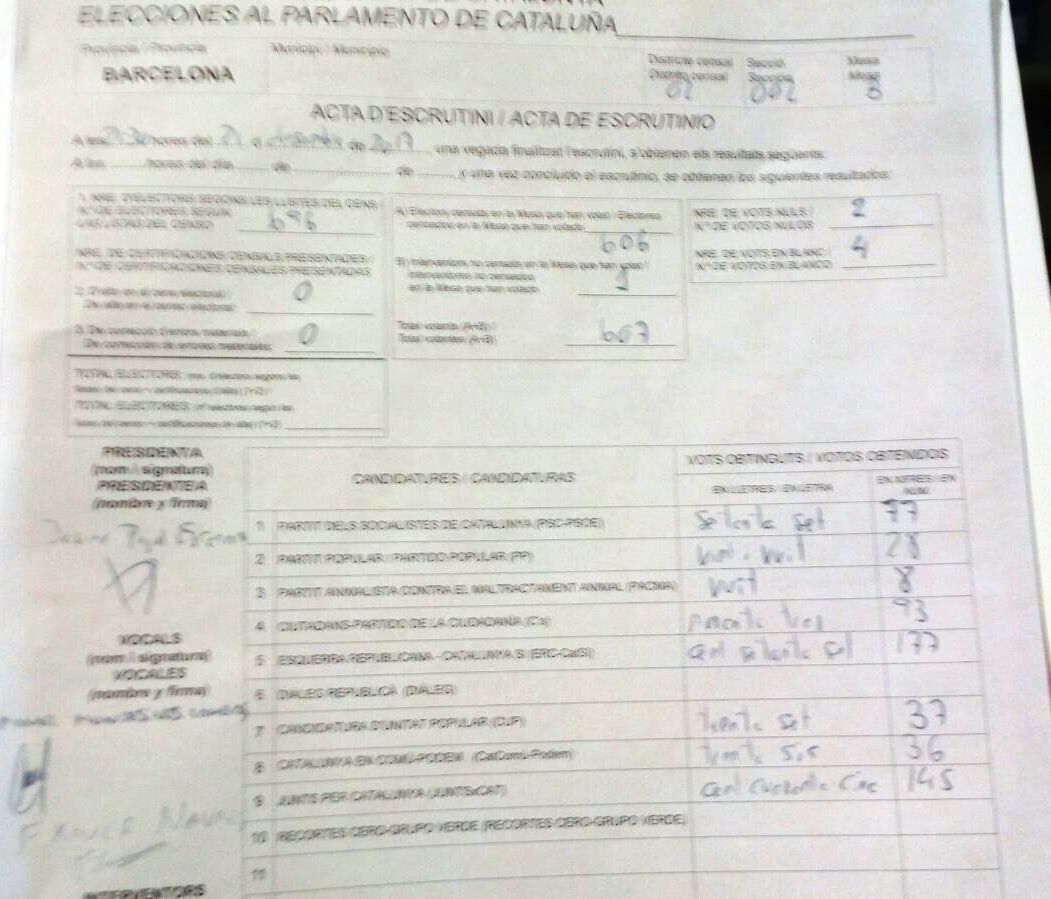 ELECCIONES AL PARLAMENTO DE CATALUÑA
Província / Provincia
BARCELONA
Municipi / Municipio
Districte censal
Distrito censal
02
Secció
Sección
002
Mesa
Mesa
B
ACTA D'ESCRUTINI / ACTA DE ESCRUTINIO
A les hores del 21 de de 2017, una vegada finalitzat l'escrutini, s'obtenen els resultats següents:
A las horas del día de de , y una vez concluido el escrutinio, se obtienen los siguientes resultados:
1. NRE. D'ELECTORS SEGONS LES LLISTES DEL CENS /
Nº DE ELECTORES SEGÚN
LAS LISTAS DEL CENSO
696
NRE. DE CERTIFICACIONS CENSALS PRESENTADES /
Nº DE CERTIFICACIONES CENSALES PRESENTADAS
2) D'alta en el cens electoral /
De alta en el censo electoral
0
3) De correcció d'errors materials /
De corrección de errores materiales
0
A) Electors censats en la Mesa que han votat / Electores
censados en la Mesa que han votado
606
B) Interventors no censats en la Mesa que han votat /
Interventores no censados
en la Mesa que han votado
1
Total votants (A+B) /
Total votantes (A+B)
607
NRE. DE VOTS NULS /
Nº DE VOTOS NULOS
2
NRE. DE VOTS EN BLANC /
Nº DE VOTOS EN BLANCO
4
PRESIDENT/A
(nom i signatura)
PRESIDENTE/A
(nombre y firma)
VOCALS
(nom i signatura)
VOCALES
(nombre y firma)
INTERVENTORS
CANDIDATURES / CANDIDATURAS
VOTS OBTINGUTS / VOTOS OBTENIDOS
EN LLETRES / EN LETRA
EN XIFRES / EN NÚM.
1 PARTIT DELS SOCIALISTES DE CATALUNYA (PSC-PSOE) setanta set 77
2 PARTIT POPULAR / PARTIDO POPULAR (PP) vint-i-vuit 28
3 PARTIT ANIMALISTA CONTRA EL MALTRACTAMENT ANIMAL (PACMA) vuit 8
4 CIUTADANS-PARTIDO DE LA CIUDADANÍA (C's) noranta tres 93
5 ESQUERRA REPUBLICANA - CATALUNYA SÍ (ERC-CatSí) cent setanta set 177
6 DIÀLEG REPÚBLICA (DIÀLEG)
7 CANDIDATURA D'UNITAT POPULAR (CUP) trenta set 37
8 CATALUNYA EN COMÚ-PODEM (CatComú-Podem) trenta sis 36
9 JUNTS PER CATALUNYA (JUNTSxCAT) cent cuaranta cinc 145
10 RECORTES CERO-GRUPO VERDE (RECORTES CERO-GRUPO VERDE)
11